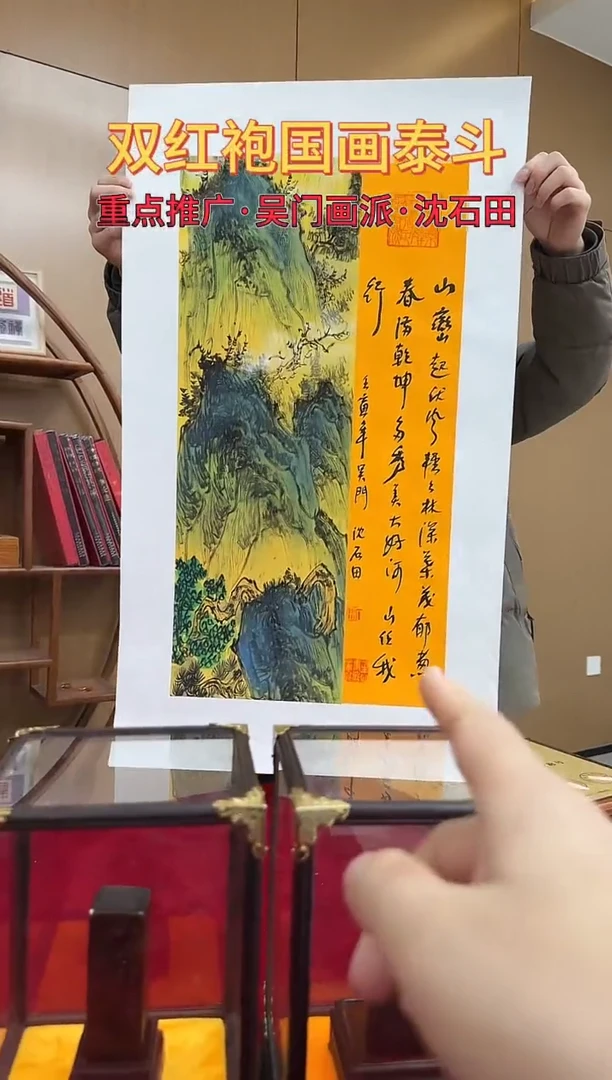 双红袍国画泰斗
重点推广·吴门画派·沈石田
山峦起伏风轻轻林深叶茂郁葱
春满乾坤多秀美大好河山任我
行
壬寅年吴門 沈石田